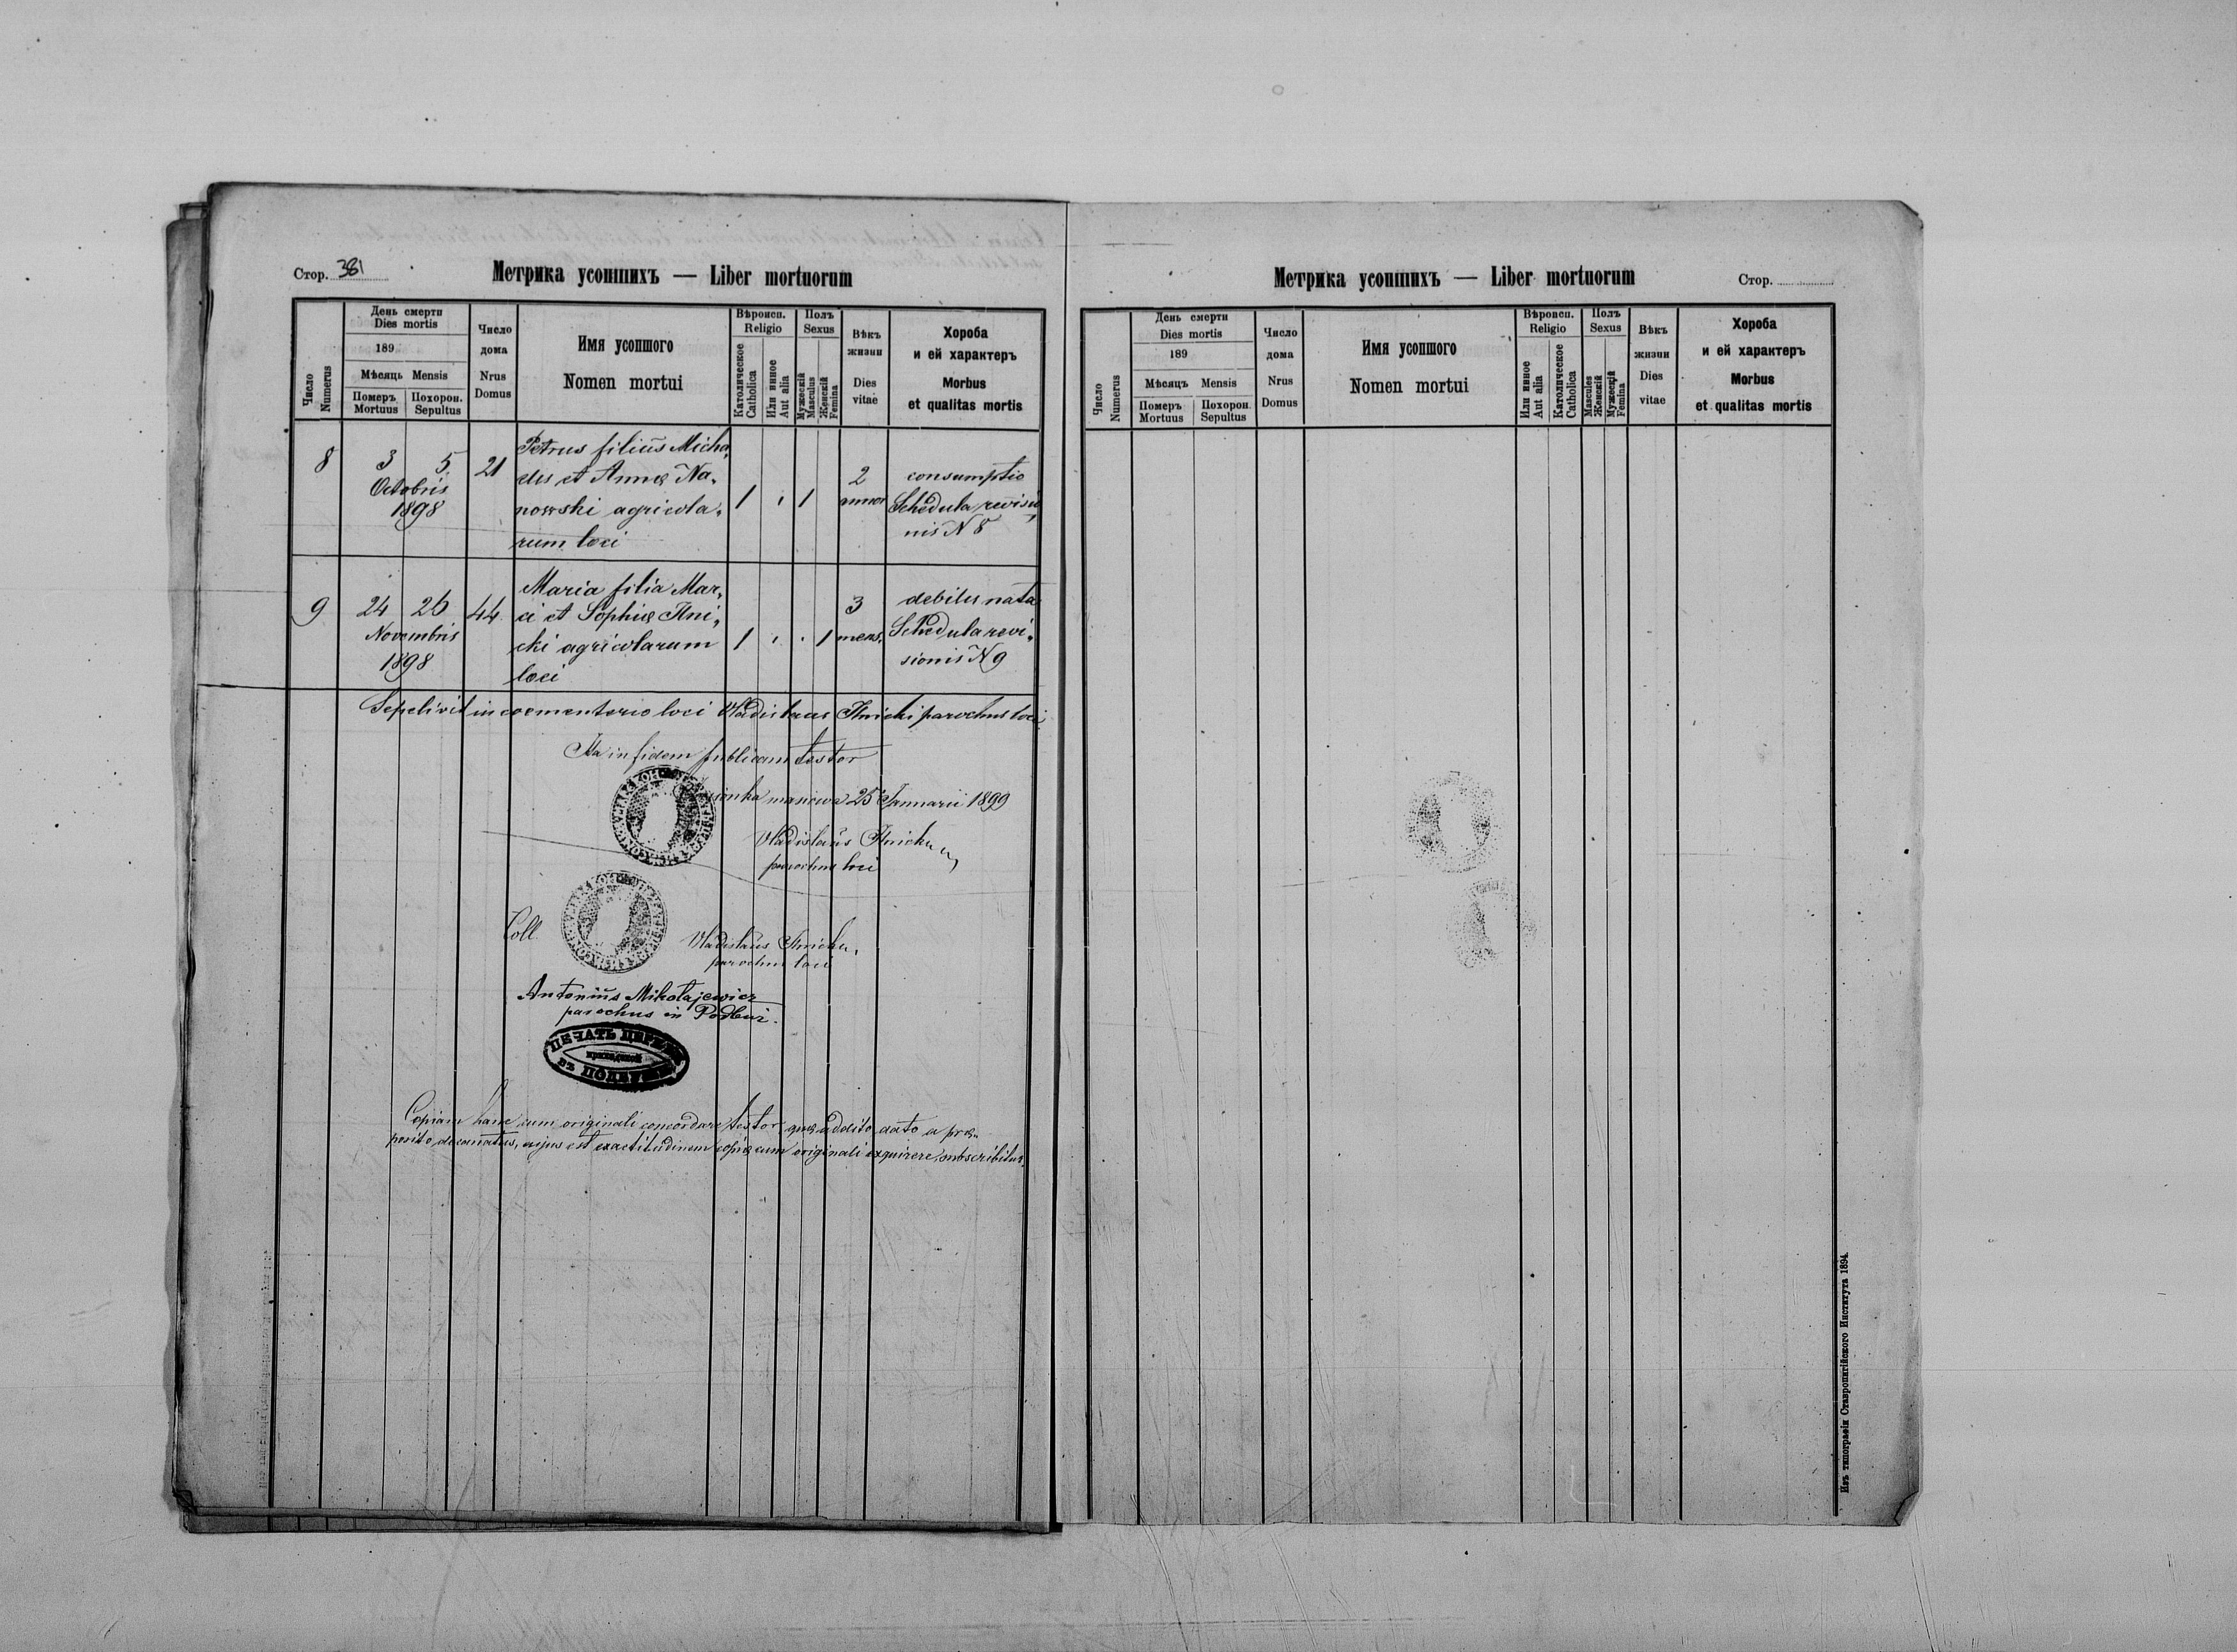 Стор. 381
Метрика усопшихъ — Liber mortuorum
Число
Numerus
День смерти
Dies mortis
189
Мѣсяць Mensis
Померъ
Mortuus
Похорон.
Sepultus
Число
дома
Nrus
Domus
Имя усопшого
Nomen mortui
Вѣроисп.
Religio
Католическое
Catholica
Или инное
Aut alia
Полъ
Sexus
Мужескій
Masculus
Женскій
Femina
Вѣкъ
жизни
Dies
vitae
Хороба
и ей характеръ
Morbus
et qualitas mortis
8
3 5
Octobris
1898
21
Petrus filius Micha„
elis et Annæ Na„
nowski agricola„
rum loci
1 , 1
2
annor
consumptio
Schedula revisio
nis N 8
9
24 26
Novembris
1898
44
Maria filia Mar„
ci et Sophiæ Ilni„
cki agricolarum
loci
1 , . 1
3
mens.
debilis nata
Schedula revi„
sionis N 9
Sepelivit in coementerio loci Vladislaus Ilnicki parochus loci
Ita in fidem publicam testor
25 Januarii 1899
Vladislaus Ilnicki
parochus loci
Coll.
Vladislaus Ilnicki
parochus loci
Antonius Mikołajewicz
parochus in Podbuż.
ПЕЧАТЬ ЦЕРКВИ
приходской
въ ПОДБУЖИ
Copiam hanc cum originali concordare testor quæ addito dato a præ„
posito decanatus, cujus est exactitudinem copiæ cum originali exquirere, subscribitur.
Метрика усопшихъ — Liber mortuorum
Стор.
Число
Numerus
День смерти
Dies mortis
189
Мѣсяцъ Mensis
Померъ
Mortuus
Похорон.
Sepultus
Число
дома
Nrus
Domus
Имя усопшого
Nomen mortui
Вѣроисп.
Religio
Или инное
Aut alia
Католическое
Catholica
Полъ
Sexus
Mascules
Женскій
Мужескій
Femina
Вѣкъ
жизни
Dies
vitae
Хороба
и ей характеръ
Morbus
et qualitas mortis
Изъ типографіи Ставропигійского Института 1894.